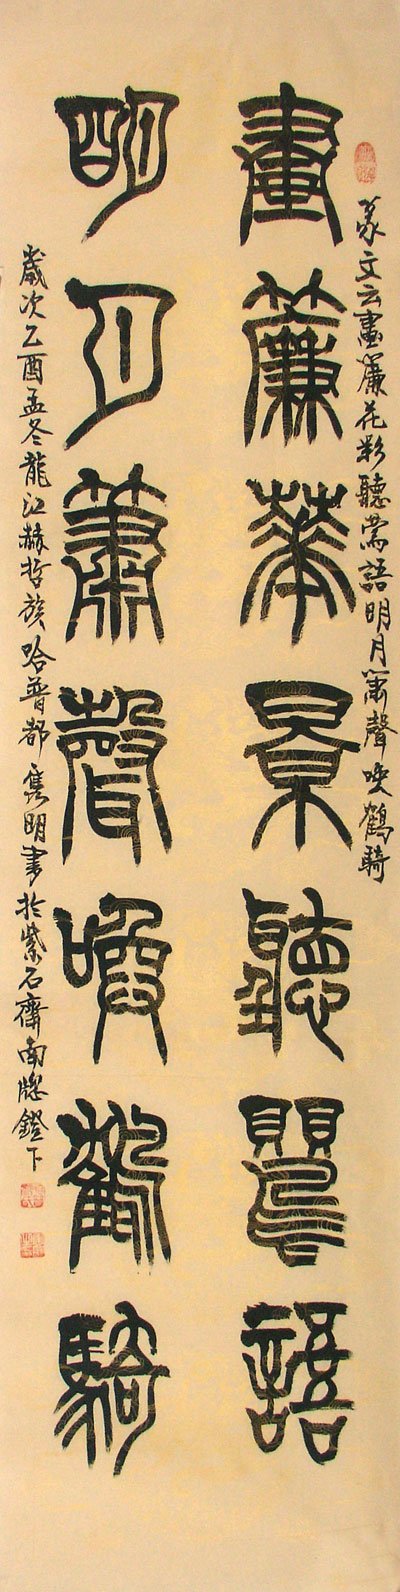 篆文云畫簾花影聽鶯語明月簫聲喚鶴騎
畫簾華景聽鸎語
明月簫聲喚鶴騎
歲次乙酉孟冬龍江赫哲族哈普都雋明書於紫石齋南牕鐙下